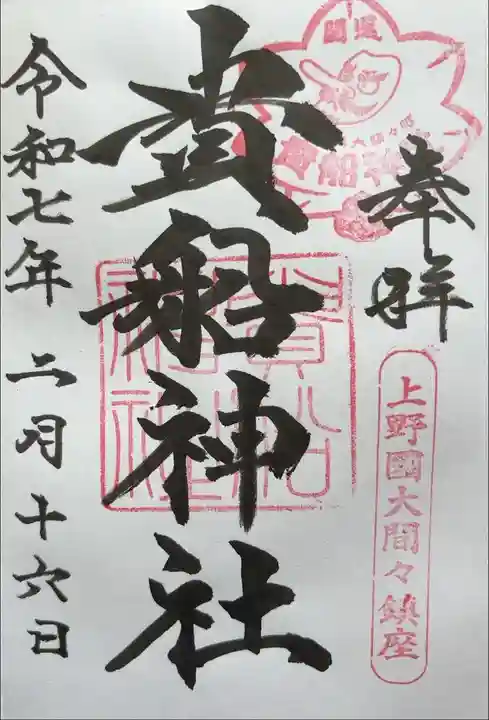 奉拝
開運
大間々町
貴船神社
上野國大間々鎮座
貴船神社
貴船神社
令和七年二月十六日